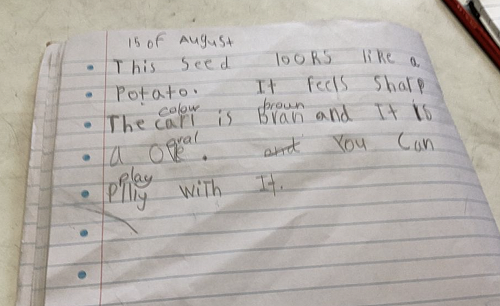 15 of August
This seed looks like a
Potato. It feels sharp
colour broun
The carl is Bran and It is
oval
a ove. and You Can
play
Plly with It.